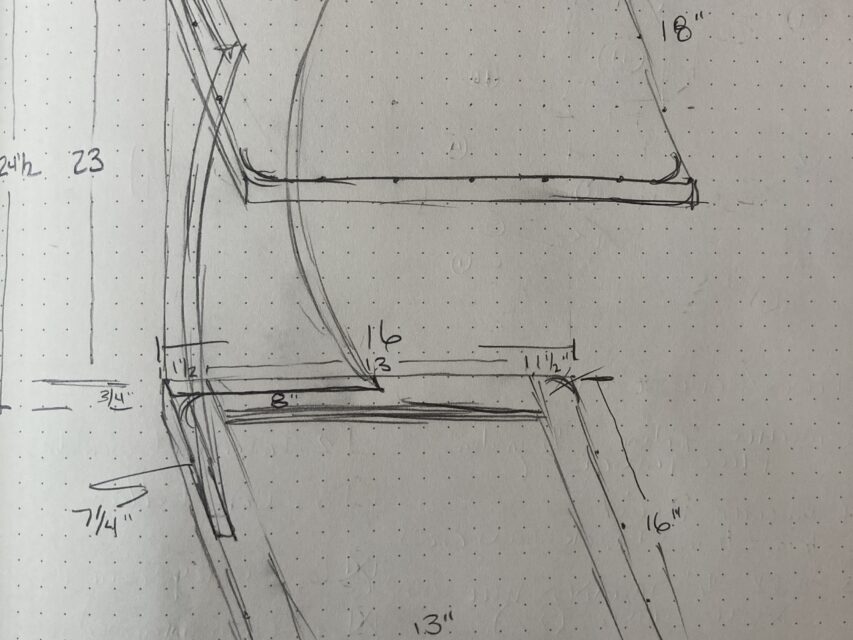 18"
24 1/2 23
16
1 1/2 13 1 1/2"
3/4" 8"
7 1/4" 16"
13"